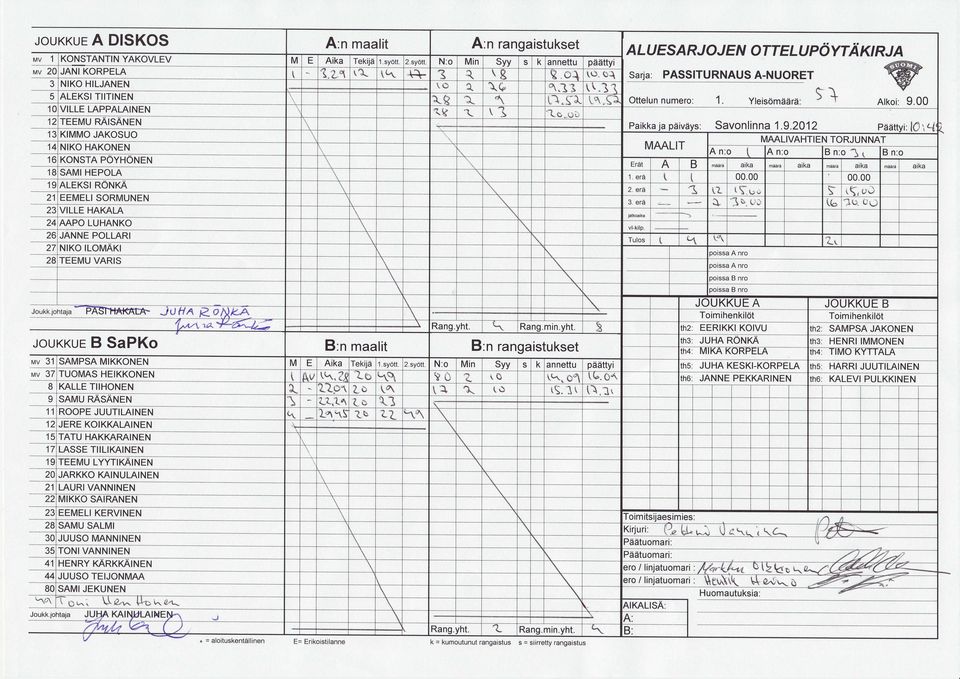 JOUKKUE A DISKOS
MV 1 KONSTANTIN YAKOVLEV
MV 20 JANI KORPELA
3 NIKO HILJANEN
5 ALEKSI TIITINEN
10 VILLE LAPPALAINEN
12 TEEMU RÄISÄNEN
13 KIMMO JAKOSUO
14 NIKO HAKONEN
16 KONSTA PÖYHÖNEN
18 SAMI HEPOLA
19 ALEKSI RÖNKÄ
21 EEMELI SORMUNEN
23 VILLE HAKALA
24 AAPO LUHANKO
26 JANNE POLLARI
27 NIKO ILOMÄKI
28 TEEMU VARIS
Joukk.johtaja PASI HAKALA JUHA RÖNKÄ
A:n maalit
M E Aika Tekijä 1.syött. 2.syött.
1 - 3.29 12 14 17
A:n rangaistukset
N:o Min Syy s k annettu päättyi
3 2 18 8.07 10.07
10 2 26 9.33 11.33
28 2 9 17.52 19.52
28 2 13 20.00
Rang.yht. 4 Rang.min.yht. 8
JOUKKUE B SaPKo
MV 31 SAMPSA MIKKONEN
MV 37 TUOMAS HEIKKONEN
8 KALLE TIIHONEN
9 SAMU RÄSÄNEN
11 ROOPE JUUTILAINEN
12 JERE KOIKKALAINEN
15 TATU HAKKARAINEN
17 LASSE TIILIKAINEN
19 TEEMU LYYTIKÄINEN
20 JARKKO KAINULAINEN
21 LAURI VANNINEN
22 MIKKO SAIRANEN
23 EEMELI KERVINEN
28 SAMU SALMI
30 JUUSO MANNINEN
35 TONI VANNINEN
41 HENRY KÄRKKÄINEN
44 JUUSO TEIJONMAA
80 SAMI JEKUNEN
49 Toni Henttonen
Joukk.johtaja JUHA KAINULAINEN
* = aloituskentällinen
B:n maalit
M E Aika Tekijä 1.syött. 2.syött.
1 AV 14.28 20 49
2 - 22.09 20 19
3 - 22.29 20 23
4 - 29.45 20 22 49
E= Erikoistilanne
B:n rangaistukset
N:o Min Syy s k annettu päättyi
80 2 10 14.09 16.09
17 2 10 15.31 17.31
Rang.yht. 2 Rang.min.yht. 4
k = kumoutunut rangaistus s = siirretty rangaistus
ALUESARJOJEN OTTELUPÖYTÄKIRJA
SUOMI
Sarja: PASSITURNAUS A-NUORET
Ottelun numero: 1. Yleisömäärä: 57 Alkoi: 9.00
Paikka ja päiväys: Savonlinna 1.9.2012 Päättyi: 10:42
MAALIT MAALIVAHTIEN TORJUNNAT
A n:o 1 A n:o B n:o 31 B n:o
Erät A B määrä aika määrä aika määrä aika määrä aika
1. erä 1 1 00.00 00.00
2. erä - 3 12 15,00 5 15,00
3. erä - - 2 30,00 16 30,00
jatkoaika
vl-kilp.
Tulos 1 4 14 21
poissa A nro
poissa A nro
poissa B nro
poissa B nro
JOUKKUE A JOUKKUE B
Toimihenkilöt Toimihenkilöt
th2: EERIKKI KOIVU th2: SAMPSA JAKONEN
th3: JUHA RÖNKÄ th3: HENRI IMMONEN
th4: MIKA KORPELA th4: TIMO KYTTALA
th5: JUHA KESKI-KORPELA th5: HARRI JUUTILAINEN
th6: JANNE PEKKARINEN th6: KALEVI PULKKINEN
Toimitsijaesimies:
Kirjuri:
Päätuomari:
Päätuomari:
ero / linjatuomari :
ero / linjatuomari : Henrik
Huomautuksia:
AIKALISÄ:
A:
B: